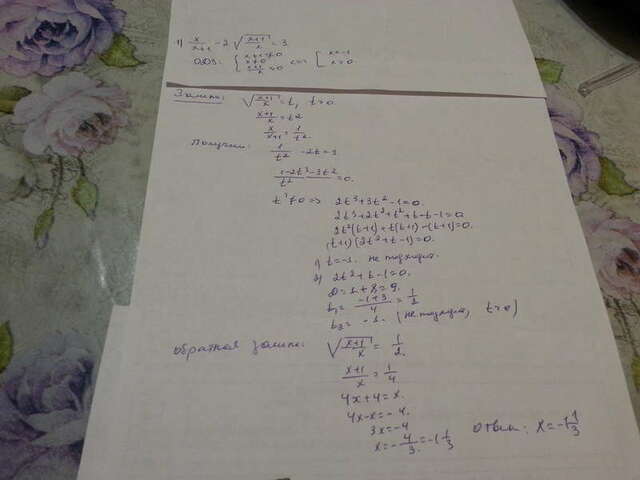 1) x/(x+1) - 2 √((x+1)/x) = 3
ОДЗ: { x+1≠0 x≠0 (x+1)/x ≥0 <=> [ x<-1 x>0
Замена: √((x+1)/x) = t, t>0
(x+1)/x = t²
x/(x+1) = 1/t²
Получим: 1/t² - 2t = 3
(1-2t³-3t²)/t² = 0.
t²≠0 => 2t³+3t²-1=0.
2t³+2t²+t²+t-t-1=0
2t²(t+1)+t(t+1)-(t+1)=0.
(t+1)(2t²+t-1)=0.
1) t=-1. не подходит.
2) 2t²+t-1=0.
D=1+8=9.
t₁= (-1+3)/4 = 1/2
t₂= -1. (не подходит, t>0)
Обратная замена: √((x+1)/x) = 1/2.
(x+1)/x = 1/4
4x+4=x.
4x-x=-4.
3x=-4
x=-4/3=-1 1/3 Ответ: x=-1 1/3